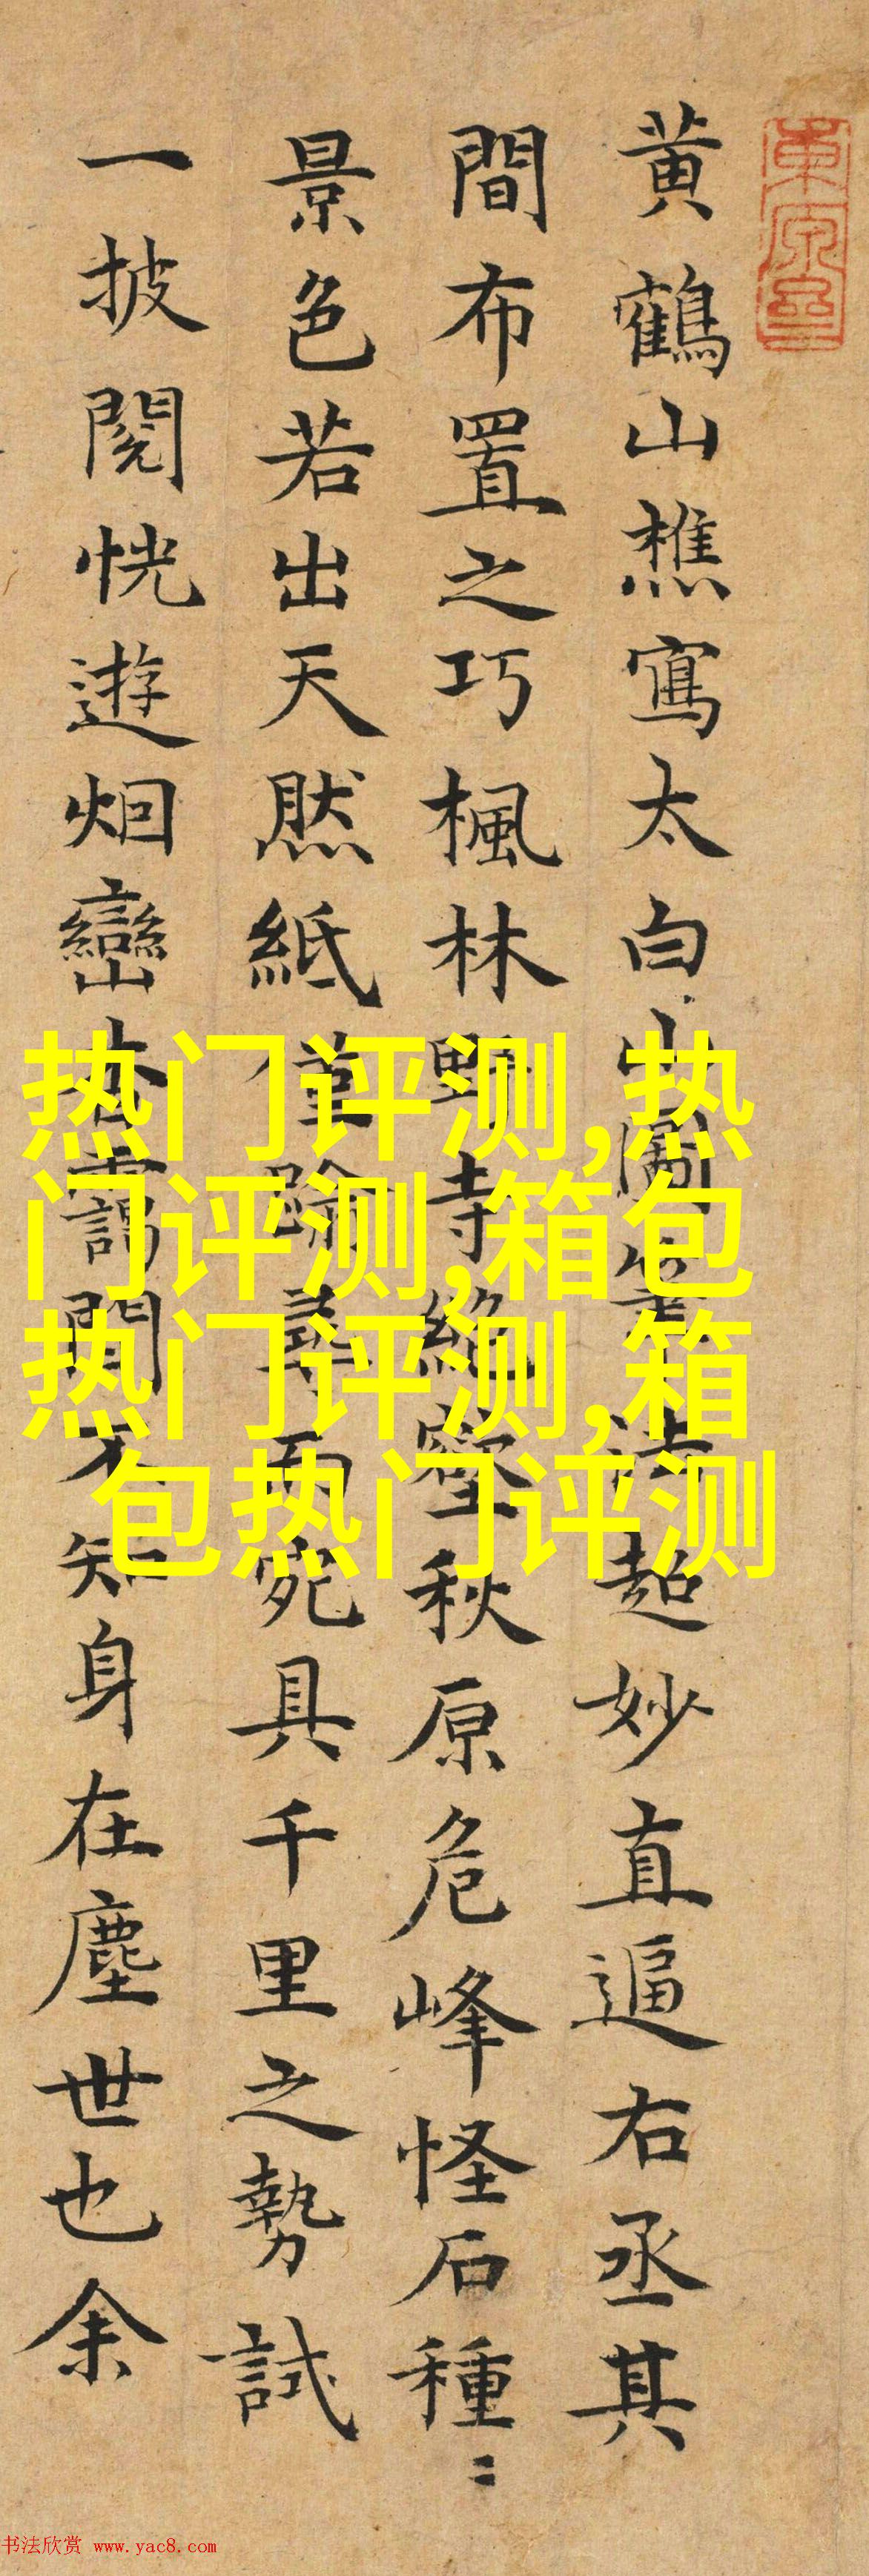 黄鶴山樵寫太白山圖筆法超妙直逼右丞其
間布置之巧楓林野寺絶壑秋原危峰怪石種〻
景色若出天然紙僅踰尋而宛具千里之勢試
一披閱恍遊烟巒杳靄間不知身在塵世也余
热门评测,热
门评测,箱包
热门评测,箱
包热门评测
书法欣赏 www.yac8.com